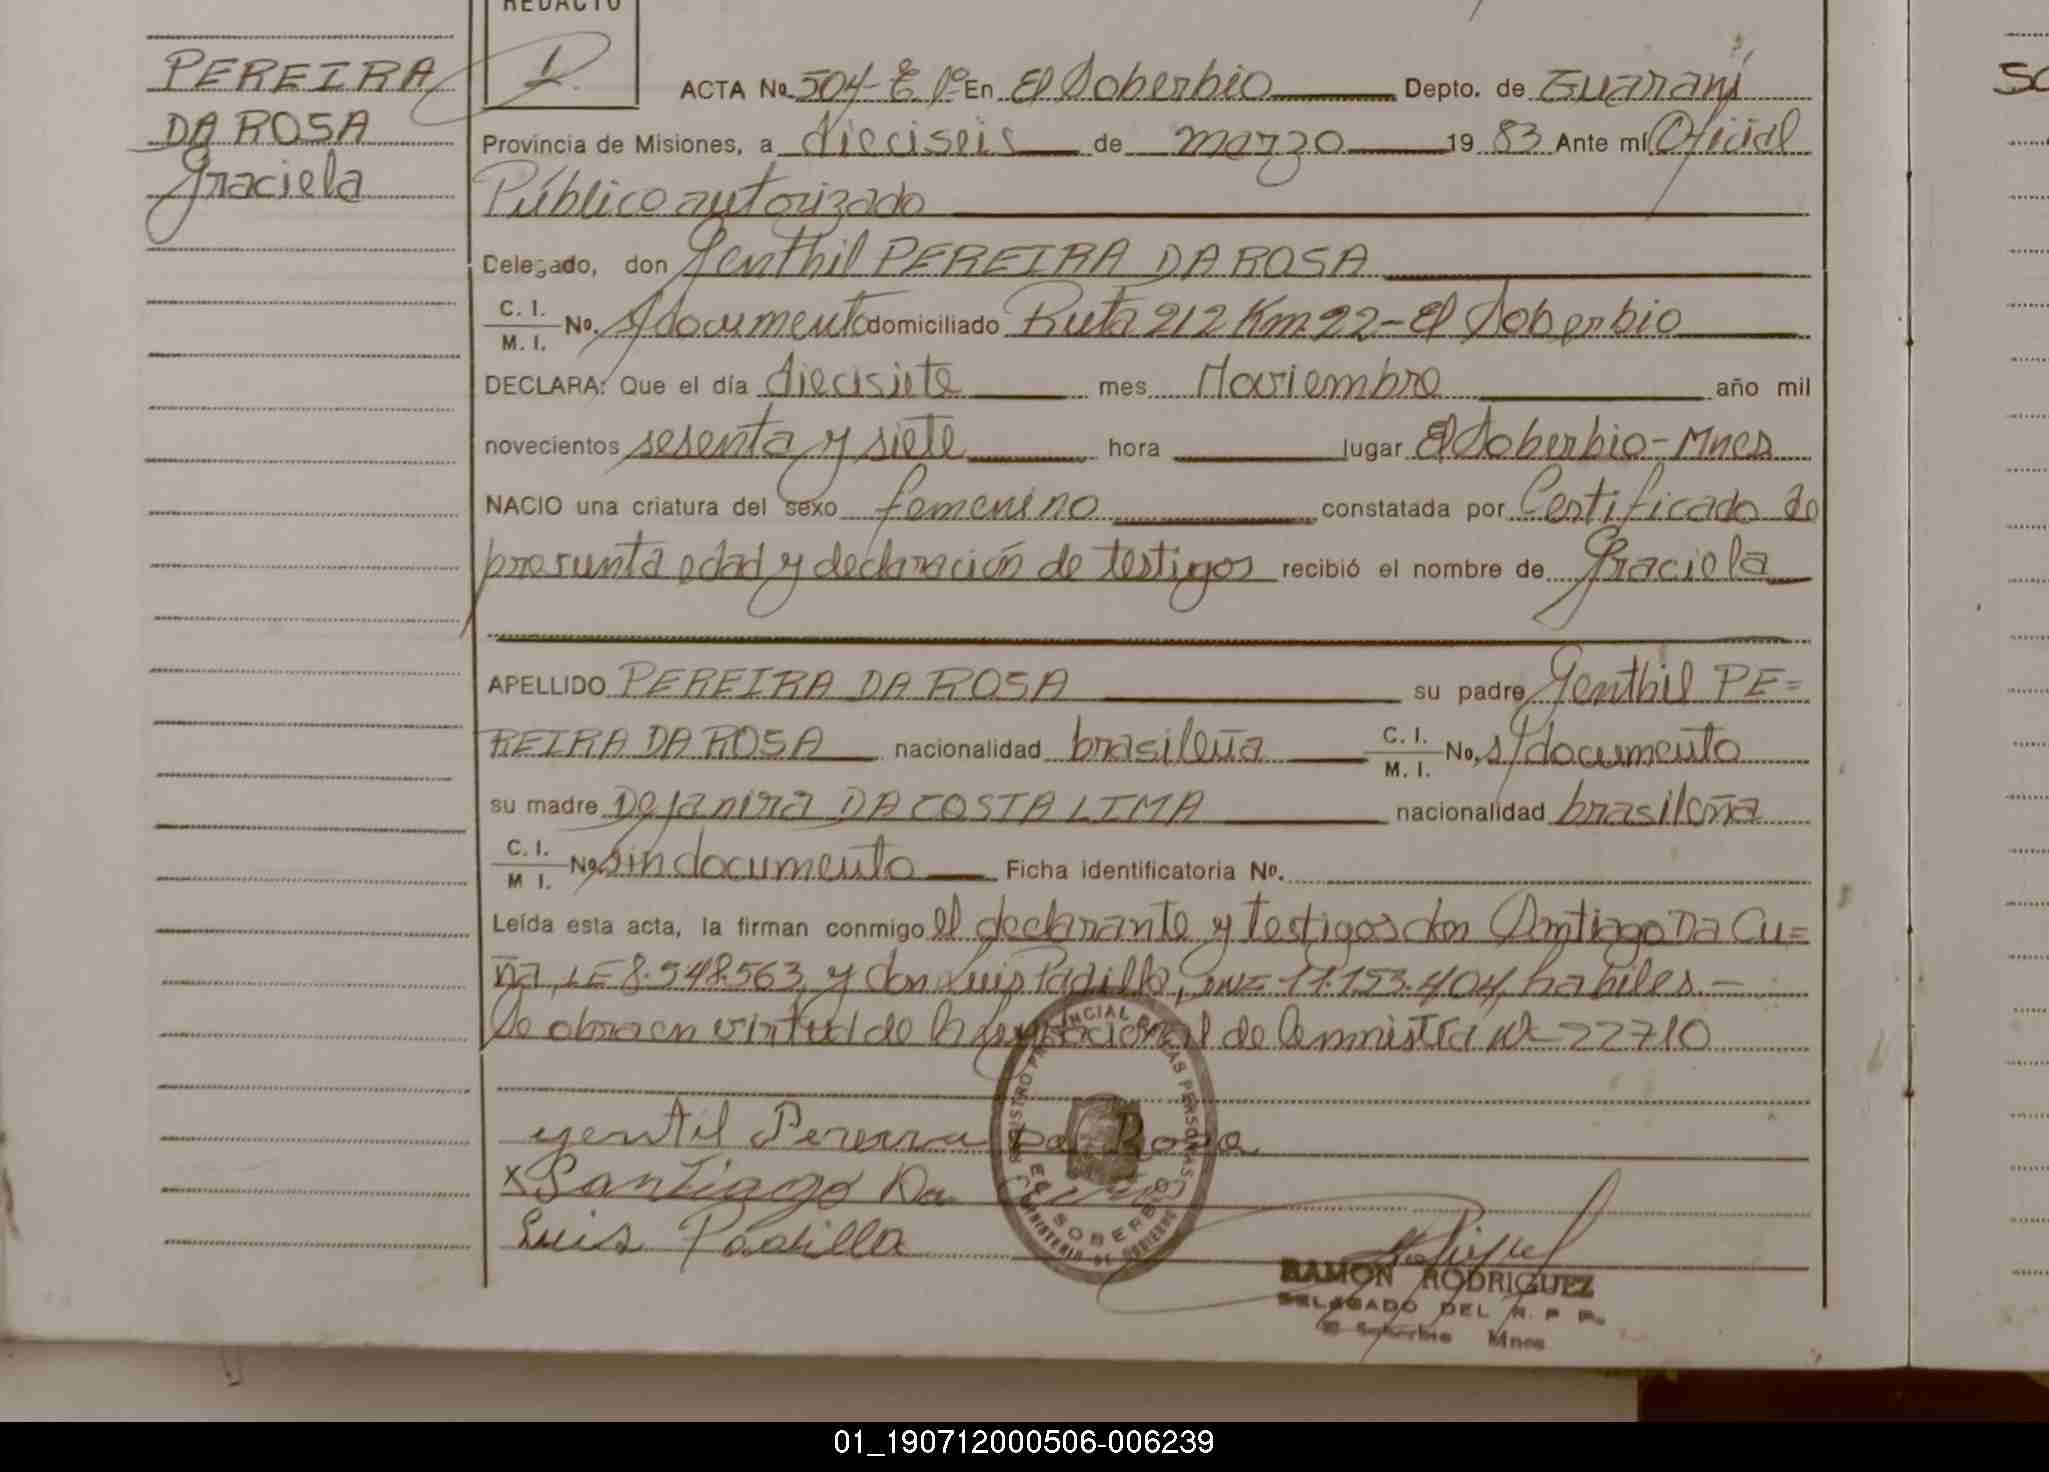 REDACTO
PEREIRA
DA ROSA
Graciela
ACTA No. 504- En El Soberbio Depto. de Guaraní
Provincia de Misiones, a dieciseis de marzo 19 83 Ante mí Oficial
Público autorizado
Delegado, don Genthil PEREIRA DA ROSA
C. I.
M. I. No. s/documento domiciliado Ruta 212 Km 22-El Soberbio
DECLARA: Que el día diecisiete mes Noviembre año mil
novecientos sesenta y siete hora lugar El Soberbio-Mnes
NACIO una criatura del sexo femenino constatada por Certificado de
presunta edad y declaración de testigos recibió el nombre de Graciela
APELLIDO PEREIRA DA ROSA su padre Genthil PE=
REIRA DA ROSA nacionalidad brasileña C. I.
M. I. No. s/documento
su madre Dejanira DA COSTA LIMA nacionalidad brasileña
C. I.
M I. No. sin documento Ficha identificatoria No.
Leída esta acta, la firman conmigo el declarante y testigos don Santiago Da Cu=
ña, LE 8.548.563, y don Luis Padilla, 17.153.404, habiles.-
Se obra en virtud de la ley nacional de Amnistía Nº 22710
gentil Pereira Da Rosa
x Santiago Da
Luis Padilla
REGISTRO PROVINCIAL DE LAS PERSONAS
EL SOBERBIO
MINISTERIO DE GOBIERNO
RAMON RODRIGUEZ
DELEGADO DEL R. P. P.
El Soberbio Mnes
SO
01_190712000506-006239